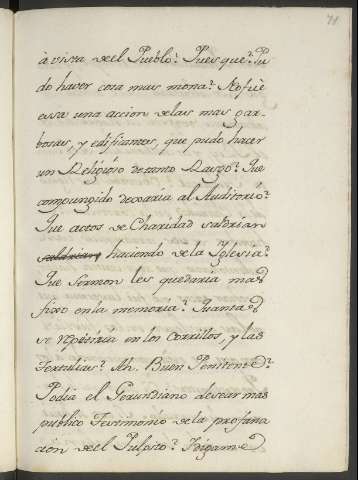 71
à vista del Pueblo? Pues que? Pu
do haver cosa mas mona? No fuè
essa una accion delas mas gar-
bosas, y edificantes, que pudo hacer
un Religioso de tanto Rasgo? Que
compungido dexaria al Auditorio?
Que actos de Charidad saldrian
saldrian haciendo de la Yglesia?
Que Sermon les quedaria mas
fixo en la memoria? Quanta
se repitiria en los corrillos, y las
Tertulias? Ah. Buen Penitente?
Podia el Gerundiano desear mas
publico Testimonio de la profana
cion del Pulpito? Digame